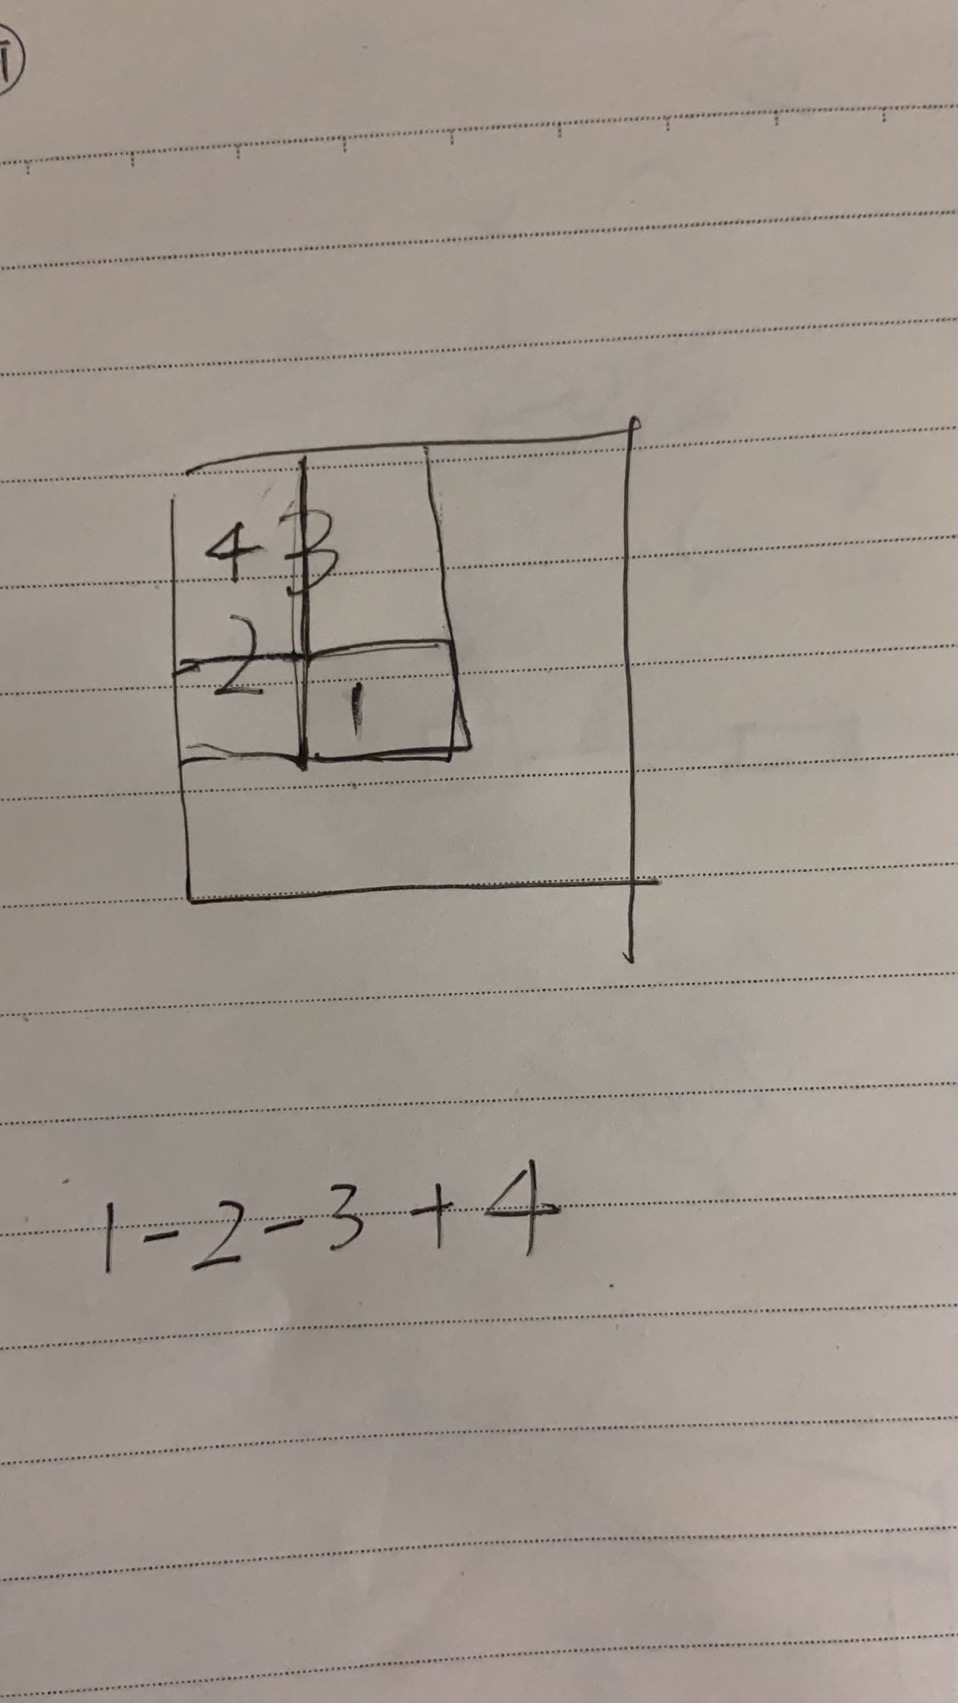 4 3
2
1
1-2-3+4